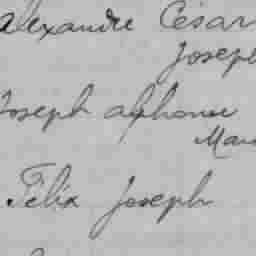 alexandre César
Joseph
Joseph alphonse
Félix Joseph